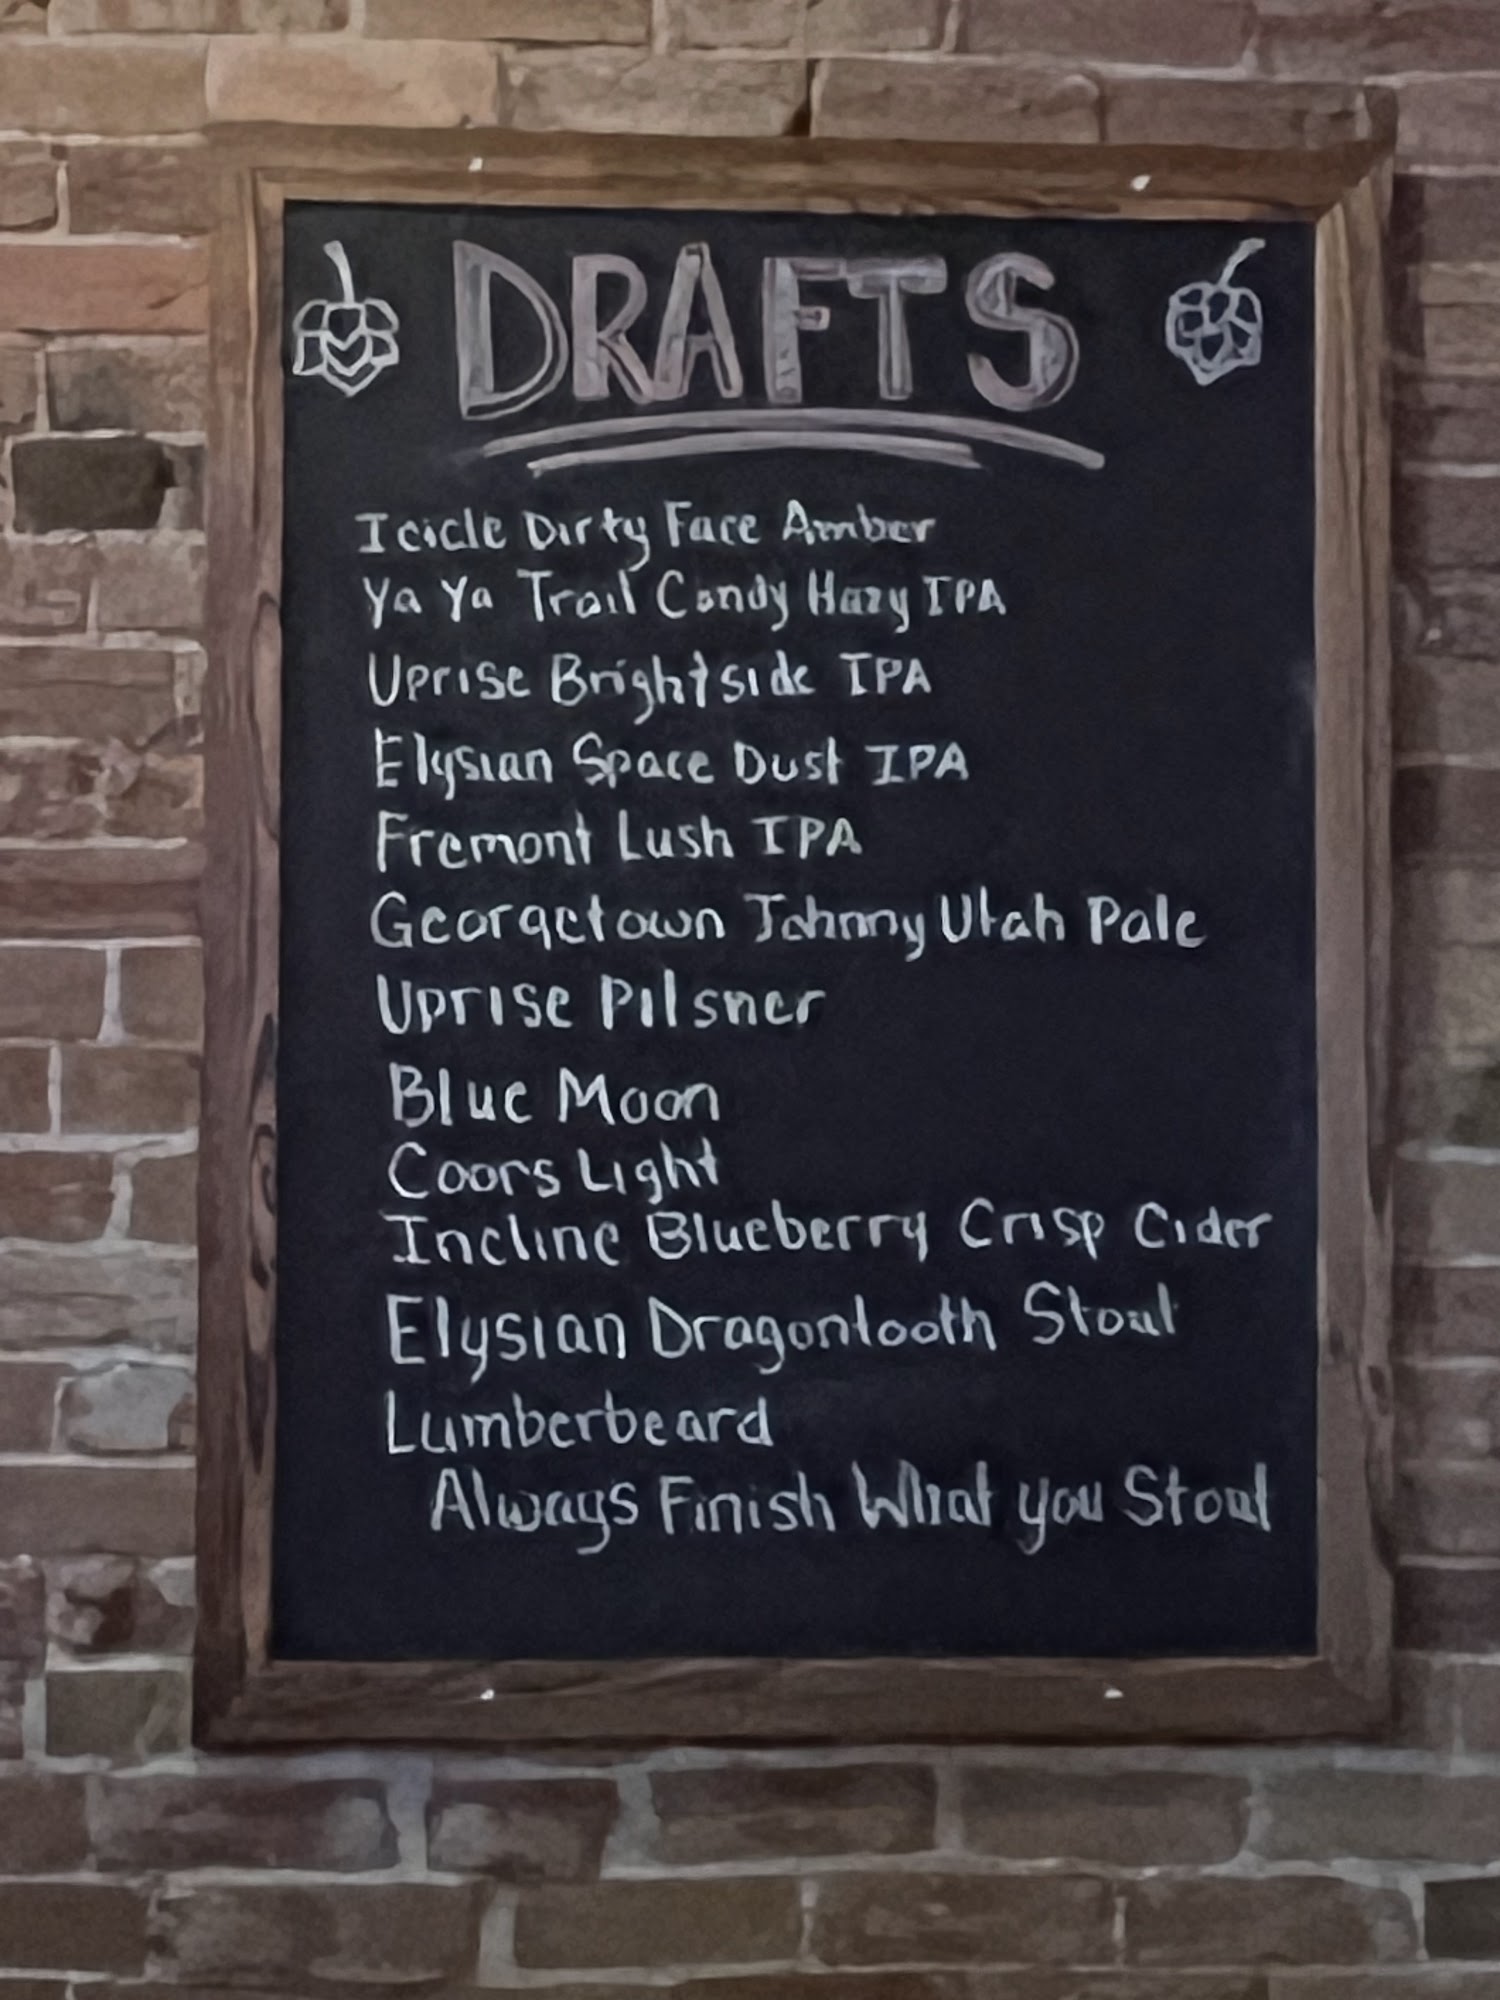 DRAFTS
Icicle Dirty Face Amber
Ya Ya Trail Candy Hazy IPA
Uprise Brightside IPA
Elysian Space Dust IPA
Fremont Lush IPA
Georgetown Johnny Utah Pale
Uprise Pilsner
Blue Moon
Coors Light
Incline Blueberry Crisp Cider
Elysian Dragontooth Stout
Lumberbeard
Always Finish What you Stout